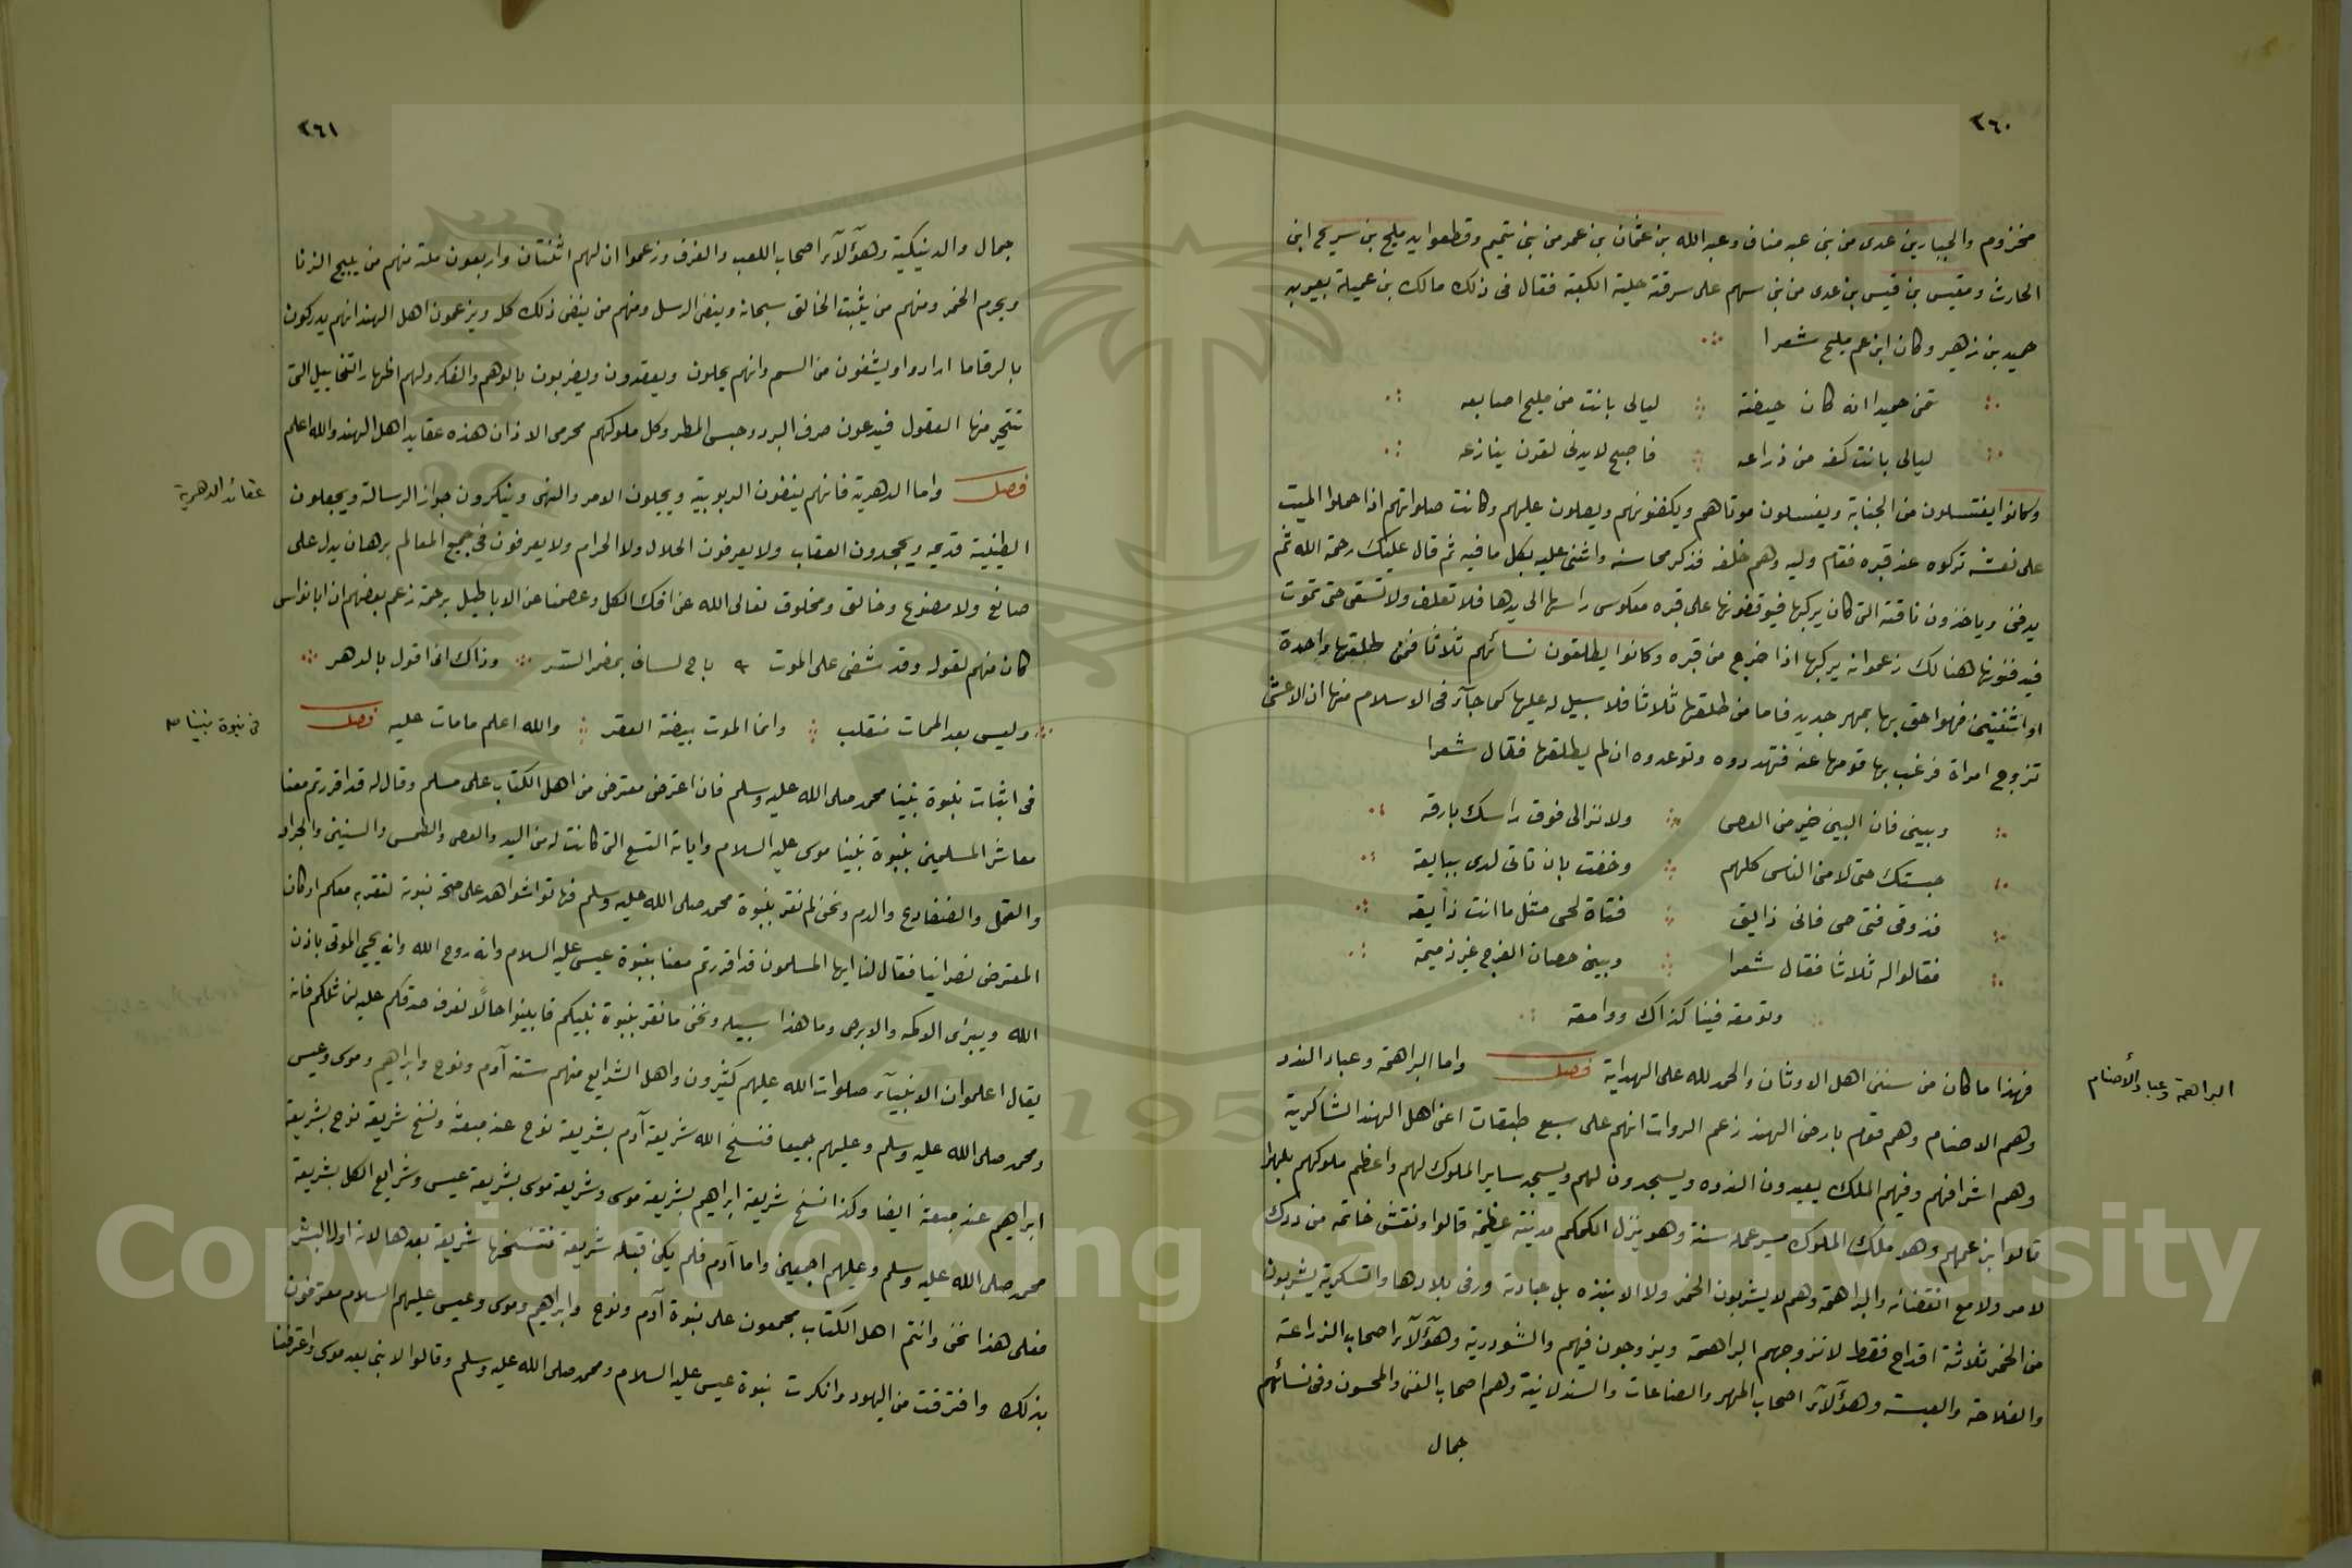 ٢٦٠
مخزوم والجبارين عدى من بنى عبد مناف وعبد الله بن عثمان بن عمر من بنى تميم وقطعوا يد مليح بن سريح ابن
الحارث ومقيس بن قيس بن عدى من بنى سهم على سرقة حلية الكعبة فقال فى ذلك مالك بن عميلة يعيب به
حميد بن زهير وكان ابن عم مليح شعرا
تمن حميدا انه كان حيضة ليالى بانت من مليح اصابعه
ليالى بانت كفه من ذراعه فاصبح لا يدنى لقرن ينازعه
وكانوا يغتسلون من الجنابة ويغسلون موتاهم ويكفنونهم ويصلون عليهم وكانت صلواتهم اذا حملوا الميت
على نعشه تركوه عند قبره فقام وليه وهم خلفه فذكر محاسنه واثنى عليه بكل ما فيه ثم قال عليك رحمة الله ثم
يدفن وياخذون ناقته التى كان يركبها فيوقفونها على قبره معكوس راسها الى يدها فلا تعلف ولا تسقى حتى تموت
فيدفنونها هنالك زعموا انه يركبها اذا خرج من قبره وكانوا يطلقون نسائهم ثلاثا فمن طلقها واحدة
او اثنتين فهو احق بها بمهر جديد فاما من طلقها ثلاثا فلا سبيل له عليها كما جآء فى الاسلام منها ان الاعشى
تزوج امراة فرغب بها قومها عنه فتهددوه وتوعدوه ان لم يطلقها فقال شعرا
وبينى فان البين خير من العصى ولا تزالى فوق راسك بارقه
حبستك حتى لامنى الناس كلهم وخفت بان تاتى لدى ببايقه
فذوقى فتى حى فانى ذايق فتاة لحى مثل ما انت ذايقه
فقالوا له ثلاثا فقال شعرا وبينى حصان الفرج غير ذميمة
وتومقه فينا كذاك ووامقه
فهذا ما كان من سنن اهل الاوثان والحمد لله على الهداية فصل واما البراهمة وعباد الندد
البراهمة وعباد الأصنام
وهم الاصنام وهم قوم بارض الهند زعم الروات انهم على سبع طبقات اعنى اهل الهند الشاكرية
وهم اشرافهم وفيهم الملك يعبدون الندوه ويسجدون لهم ويسجد ساير الملوك لهم واعظم ملوكهم بلهرا
قالوا ابن عمهم وهو ملك الملوك مسير عمله سنة وهو ينزل الكمكم مدينة عظيمة قالوا ونقش خاتمه من ودك
لامر ولا مع انقضائه والبراهمة وهم لا يشربون الخمر ولا الانبذه بل عبادة ورقى بلادها والتسكرية يشربون
من الخمر ثلاثة اقداح فقط لا تزوجهم البراهمة ويزوجون فيهم والشودرية وهؤلآء اصحاب الزراعة
والفلاحة والعيسة وهؤلآء اصحاب المهر والصناعات والسندلانية وهم اصحاب الغنى والمحسون وفى نسائهم
جمال
٢٦١
جمال والدينكية وهؤلآء اصحاب اللعب والفرف وزعموا ان لهم اثنتان واربعون ملة منهم من يبيح الزنا
ويحرم الخمر ومنهم من يثبت الخالق سبحانه وينفى الرسل ومنهم من ينفى ذلك كله ويزعمون اهل الهند انهم يدركون
بالرقا ما ارادوا ويشفون من السم وانهم يحلون ويعقدون ويضربون بالوهم والفكر ولهم اظهار التخاييل التى
تتحير منها العقول فيدعون صرف البرد وحبس المطر وكل ملوكهم محرمى الاذان هذه عقايد اهل الهند والله اعلم
فصل واما الدهرية فانهم ينفون الربوبية ويحيلون الامر والنهى وينكرون جواز الرسالة ويجعلون
عقائد الدهرية
الطينية قديمه ويجحدون العقاب ولا يعرفون الحلال ولا الحرام ولا يعرفون فى جميع المعالم برهان يدل على
صانع ولا مصنوع وخالق ومخلوق تعالى الله عن افك الكل وعصمنا عن الاباطيل برحمته زعم بعضهم ان ابا نواس
كان منهم لقوله وقد شفى على الموت باح لسانى بمضمر الستر وذاك انى اقول بالدهر
وليس بعد الممات منقلب وانما الموت بيضة العقر والله اعلم ما مات عليه فصل
فى نبوة نبينا ص
فى اثبات نبوة نبينا محمد صلى الله عليه وسلم فان اعترض معترض من اهل الكتاب على مسلم وقال له قد اقررتم معنا
معاشر المسلمين بنبوة نبينا موسى عليه السلام واياته التسع التى كانت له من اليد والعصى والطمس والسنين والجراد
والقمل والضفادع والدم ونحن لم نقر بنبوة محمد صلى الله عليه وسلم فهاتوا شواهد على صحة نبوته لنقر به معكم او كان
المعترض نصرانيا فقال لنا ايها المسلمون قد اقررتم معنا بنبوة عيسى عليه السلام وانه روح الله وانه يحيى الموتى باذن
الله ويبرئ الاكمه والابرص وما هذا سبيله ونحن ما نقر بنبوة نبيكم فابينوا حالا نعرف صدقكم عليه فانه
يقال اعلموا ان الانبيآء صلوات الله عليهم كثيرون واهل الشرايع منهم ستة آدم ونوح وابراهيم وموسى وعيسى
ومحمد صلى الله عليه وسلم وعليهم جميعا فنسخ الله شريعة آدم بشريعة نوح عند مبعثه ونسخ شريعة نوح بشريعة
ابراهيم عند مبعثه ايضا وكذا نسخ شريعة ابراهيم بشريعة موسى وشريعة موسى بشريعة عيسى وشرايع الكل بشريعة
محمد صلى الله عليه وسلم وعليهم اجمعين واما آدم فلم يكن قبله شريعة فتنسخها شريعة بعدها لانه اول البشر
فعلى هذا نحن وانتم اهل الكتاب مجمعون على نبوة آدم ونوح وابراهيم وموسى وعيسى عليهم السلام معترفون
بذلك وافترقت من اليهود وانكرت نبوة عيسى عليه السلام ومحمد صلى الله عليه وسلم وقالوا لا نبى بعد موسى واعترفنا
Copyright © King Saud University
1957